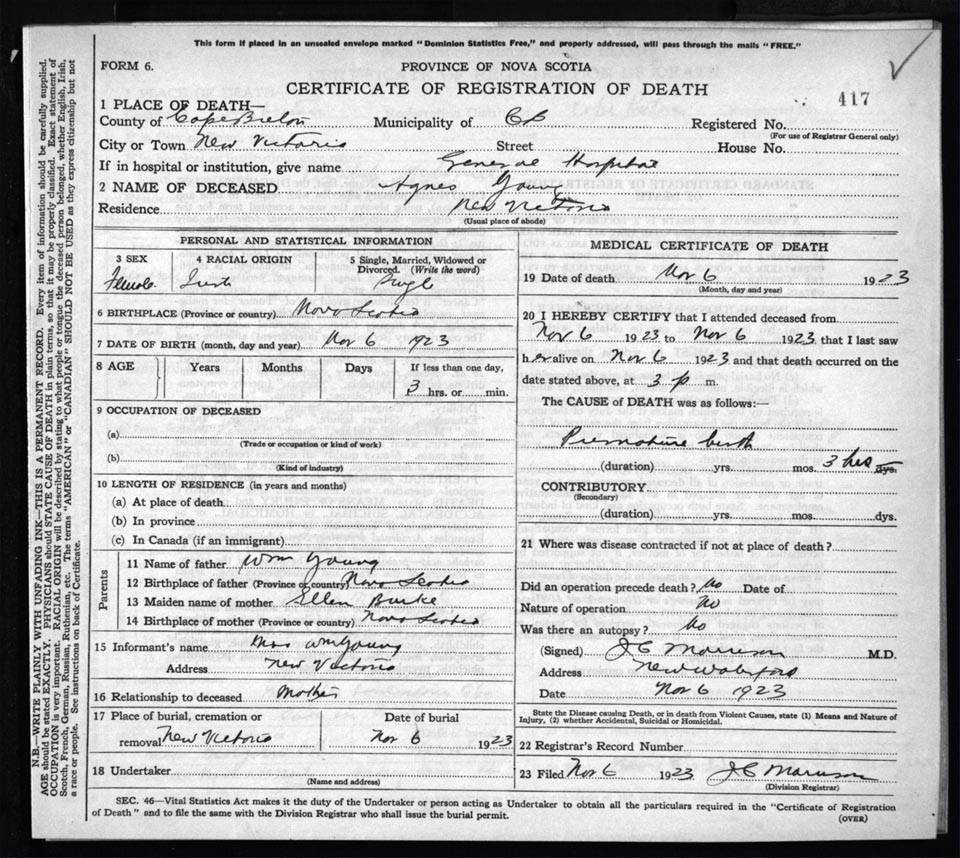 This form if placed in an unsealed envelope marked "Dominion Statistics Free," and properly addressed, will pass through the mails "FREE."
FORM 6.
PROVINCE OF NOVA SCOTIA
CERTIFICATE OF REGISTRATION OF DEATH
417
1 PLACE OF DEATH—
County of Cape Breton Municipality of CB Registered No.
(For use of Registrar General only)
City or Town New Victoria Street House No.
If in hospital or institution, give name General Hospital
2 NAME OF DECEASED Agnes Young
Residence New Victoria
(Usual place of abode)
PERSONAL AND STATISTICAL INFORMATION
3 SEX 4 RACIAL ORIGIN 5 Single, Married, Widowed or Divorced. (Write the word)
Female Irish Single
6 BIRTHPLACE (Province or country) Nova Scotia
7 DATE OF BIRTH (month, day and year) Nov 6 1923
8 AGE Years Months Days If less than one day,
3 hrs. or min.
9 OCCUPATION OF DECEASED
(a)
(Trade or occupation or kind of work)
(b)
(Kind of industry)
10 LENGTH OF RESIDENCE (in years and months)
(a) At place of death
(b) In province
(c) In Canada (if an immigrant)
Parents
11 Name of father Wm Young
12 Birthplace of father (Province or country) Nova Scotia
13 Maiden name of mother Ellen Burke
14 Birthplace of mother (Province or country) Nova Scotia
15 Informant's name Mrs Wm Young
Address New Victoria
16 Relationship to deceased Mother
17 Place of burial, cremation or removal New Victoria Date of burial Nov 6 1923
18 Undertaker
(Name and address)
MEDICAL CERTIFICATE OF DEATH
19 Date of death Nov 6 1923
(Month, day and year)
20 I HEREBY CERTIFY that I attended deceased from
Nov 6 1923 to Nov 6 1923 that I last saw
her alive on Nov 6 1923 and that death occurred on the
date stated above, at 3 p m.
The CAUSE of DEATH was as follows:—
Premature birth
(duration) yrs. mos. 3 hrs dys.
CONTRIBUTORY
(Secondary)
(duration) yrs. mos. dys.
21 Where was disease contracted if not at place of death?
Did an operation precede death? No Date of
Nature of operation No
Was there an autopsy? No
(Signed) J C Morrison M.D.
Address New Waterford
Date Nov 6 1923
State the Disease causing Death, or in death from Violent Causes, state (1) Means and Nature of
Injury, (2) whether Accidental, Suicidal or Homicidal.
22 Registrar's Record Number
23 Filed Nov 6 1923 J C Morrison
(Division Registrar)
SEC. 46—Vital Statistics Act makes it the duty of the Undertaker or person acting as Undertaker to obtain all the particulars required in the "Certificate of Registration
of Death" and to file the same with the Division Registrar who shall issue the burial permit.
(OVER)
N.B.—WRITE PLAINLY WITH UNFADING INK—THIS IS A PERMANENT RECORD. Every item of information should be carefully supplied.
AGE should be stated EXACTLY. PHYSICIANS should STATE CAUSE OF DEATH in plain terms, so that it may be properly classified. Exact statement of
OCCUPATION is very important. RACIAL ORIGIN will be described by stating to what people or tongue the deceased person belonged, whether English, Irish,
Scotch, French, German, Russian, Ruthenian, etc. The terms "AMERICAN" or "CANADIAN" SHOULD NOT BE USED as they express citizenship but not
a race or people. See instructions on back of Certificate.